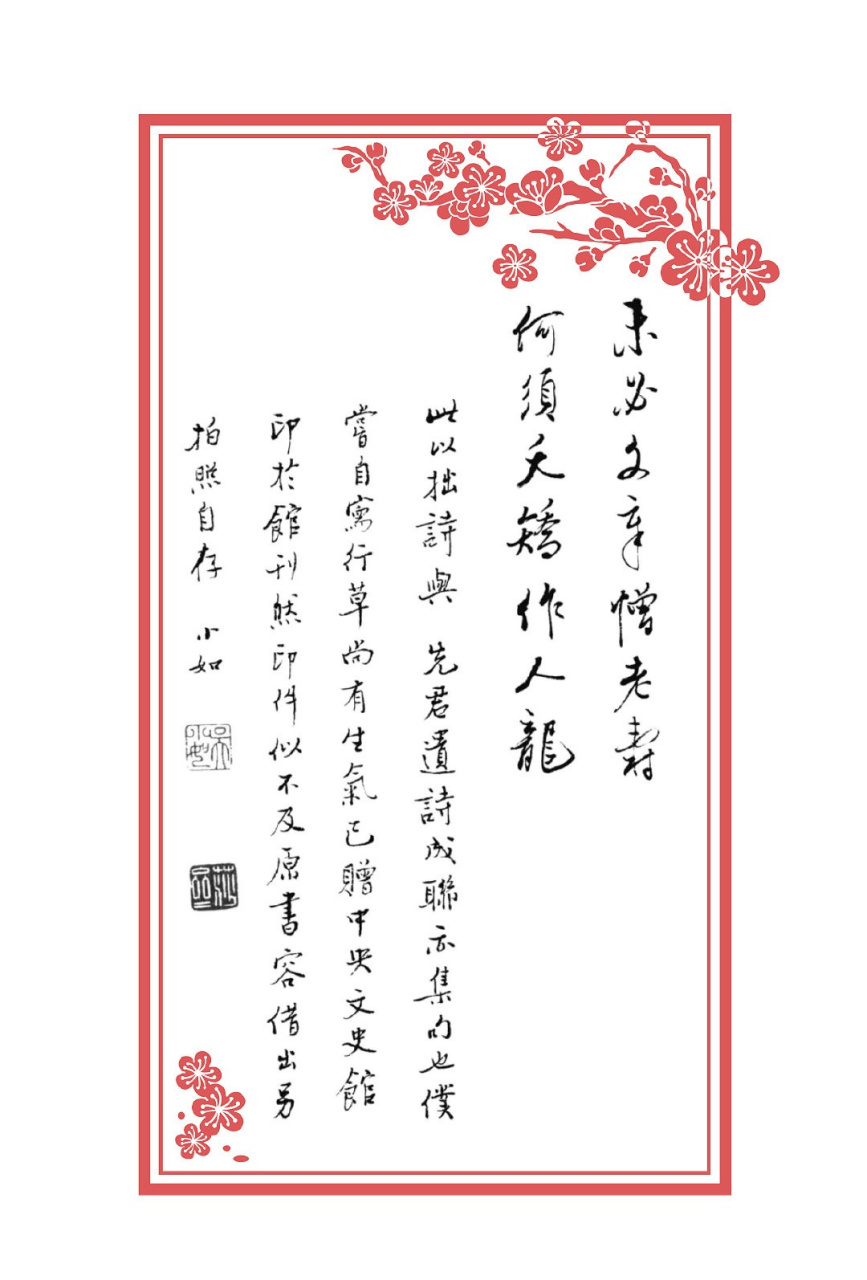 未必文章憎老壽
何須夭矯作人龍
此以拙詩與 先君遺詩成聯亦集句也僕
嘗自寫行草尚有生氣已贈中央文史館
印於館刊然印件似不及原書容借出另
拍照自存 小如
吳小如
莎齋